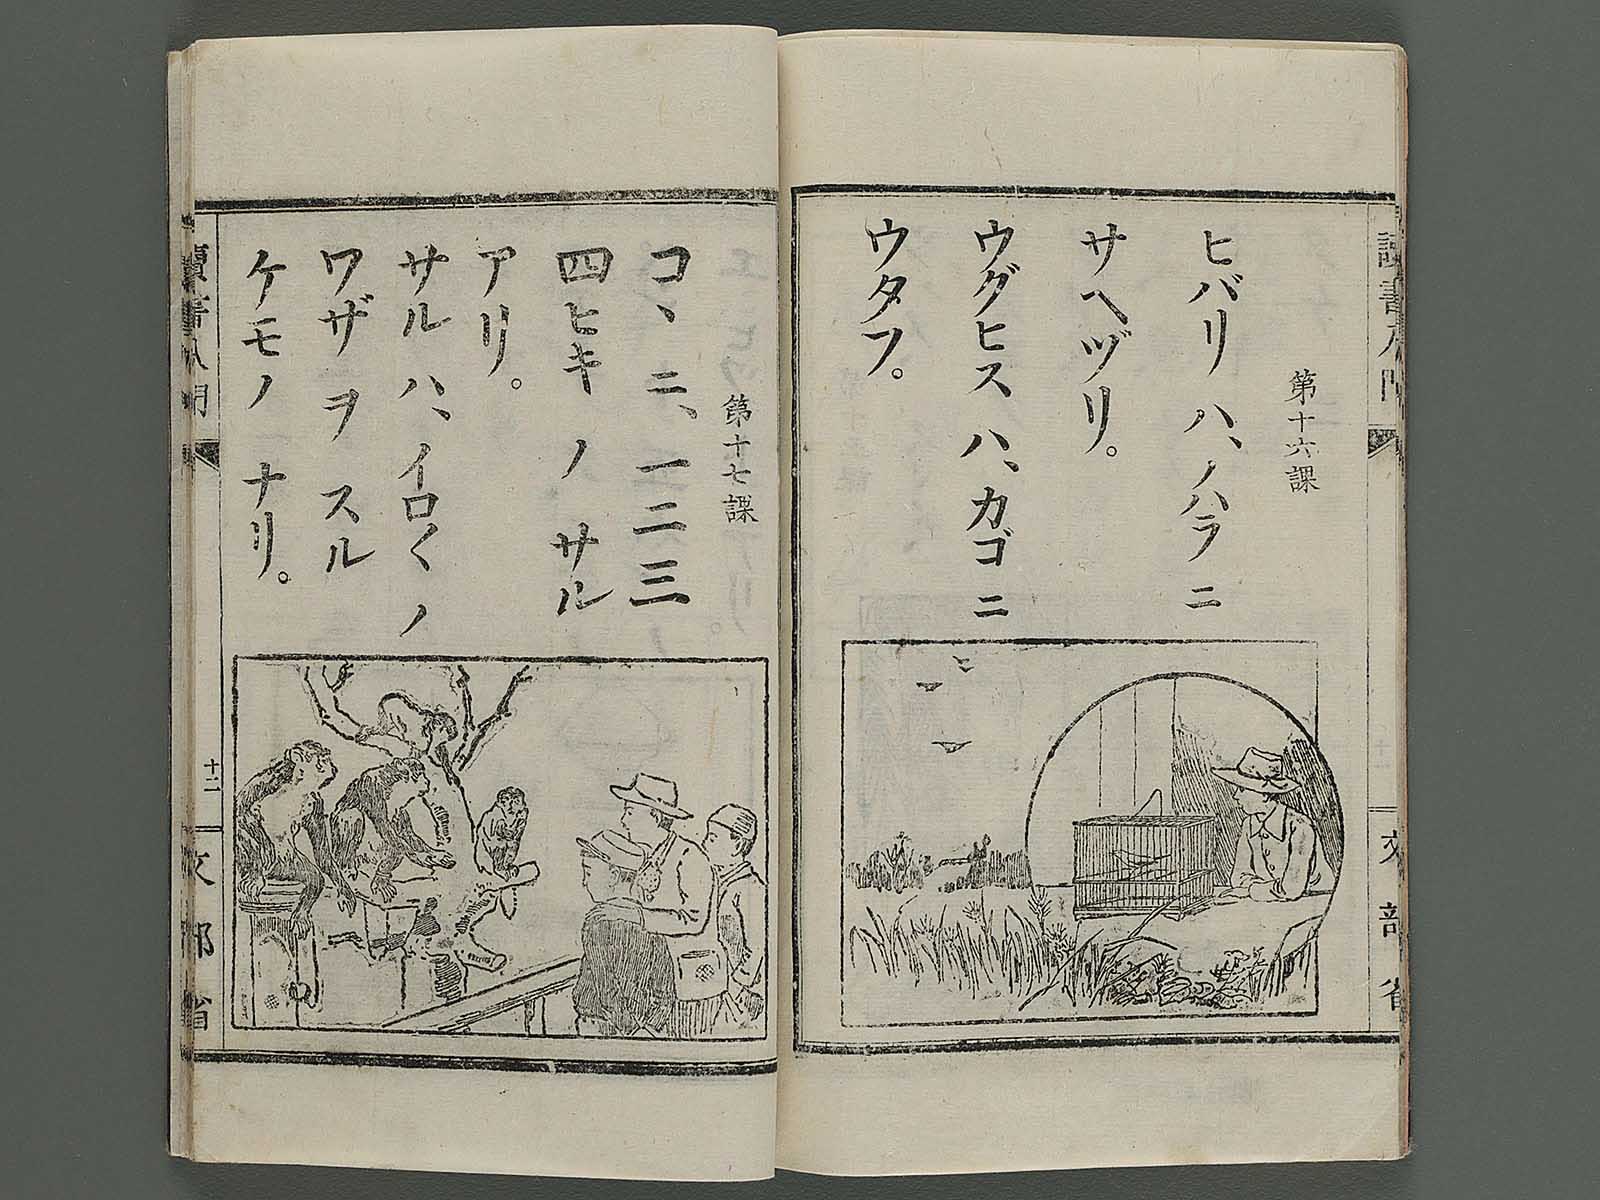 第十六課
ヒバリ ハ、ノハラ ニ
サヘヅリ。
ウグヒス ハ、カゴ ニ
ウタフ。
第十七課
コヽ ニ、一二三
四ヒキ ノ サル
アリ。
サル ハ、イロ〱 ノ
ワザ ヲ スル
ケモノ ナリ。
讀書入門
十二
文部省